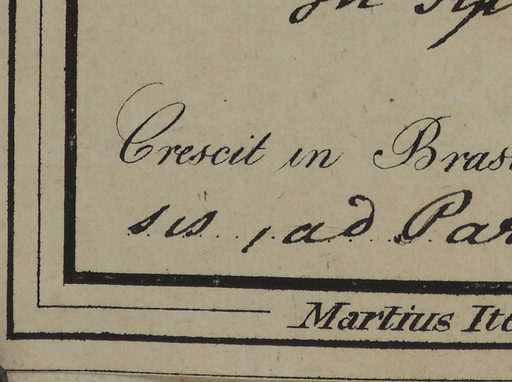 Crescit in Bras
sis, ad Par
Martius Ite